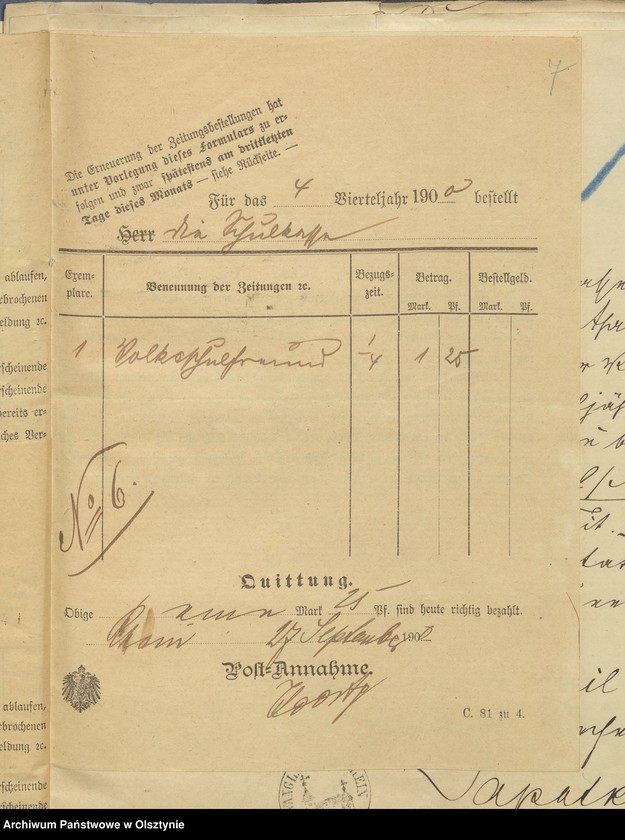 7
Die Erneuerung der Zeitungsbestellungen hat
unter Vorlegung dieses Formulars zu er-
folgen und zwar spätestens am drittletzten
Tage dieses Monats — siehe Rückseite. —
Für das 4 Vierteljahr 1900 bestellt
Herr die Schulkasse
Exem-
plare.
Benennung der Zeitungen ꝛc.
Bezugs-
zeit.
Betrag.
Mark. Pf.
Bestellgeld.
Mark. Pf.
1 Volksschulfreund 1/4 1 25
No 6.
Quittung.
Obige eine Mark 25 Pf. sind heute richtig bezahlt.
27 September 190
Post-Annahme.
C. 81 zu 4.
ablaufen,
rbrochenen
eldung ꝛc.
rscheinende
rscheinende
ereits er-
ches Ver-
ablaufen,
rbrochenen
eldung ꝛc.
rscheinende
rscheinende
Archiwum Państwowe w Olsztynie